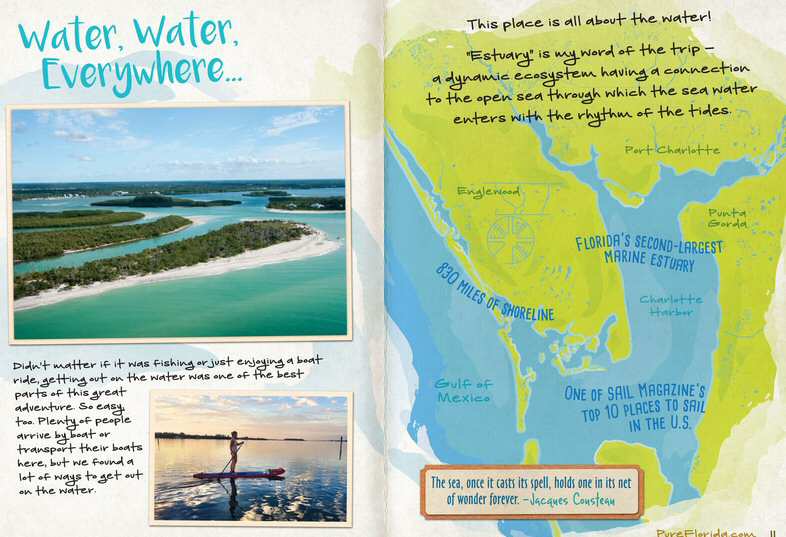 Water, Water,
Everywhere...
Didn't matter if it was fishing or just enjoying a boat
ride, getting out on the water was one of the best
parts of this great
adventure. So easy,
too. Plenty of people
arrive by boat or
transport their boats
here, but we found a
lot of ways to get out
on the water.
This place is all about the water!
"Estuary" is my word of the trip –
a dynamic ecosystem having a connection
to the open sea through which the sea water
enters with the rhythm of the tides.
Port Charlotte
Englewood
Punta
Gorda
Florida's second-largest
marine estuary
830 miles of shoreline
Charlotte
Harbor
Gulf of
Mexico
One of Sail Magazine's
top 10 places to sail
in the U.S.
The sea, once it casts its spell, holds one in its net
of wonder forever. –Jacques Cousteau
PureFlorida.com 11